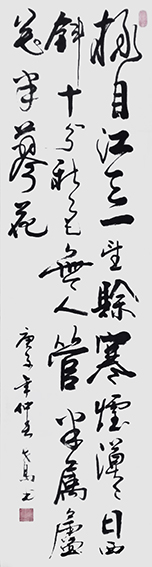 極目江天一望賒寒煙漠〻日西
斜十分秋色無人管半属蘆
花半蓼花
庚子年仲春